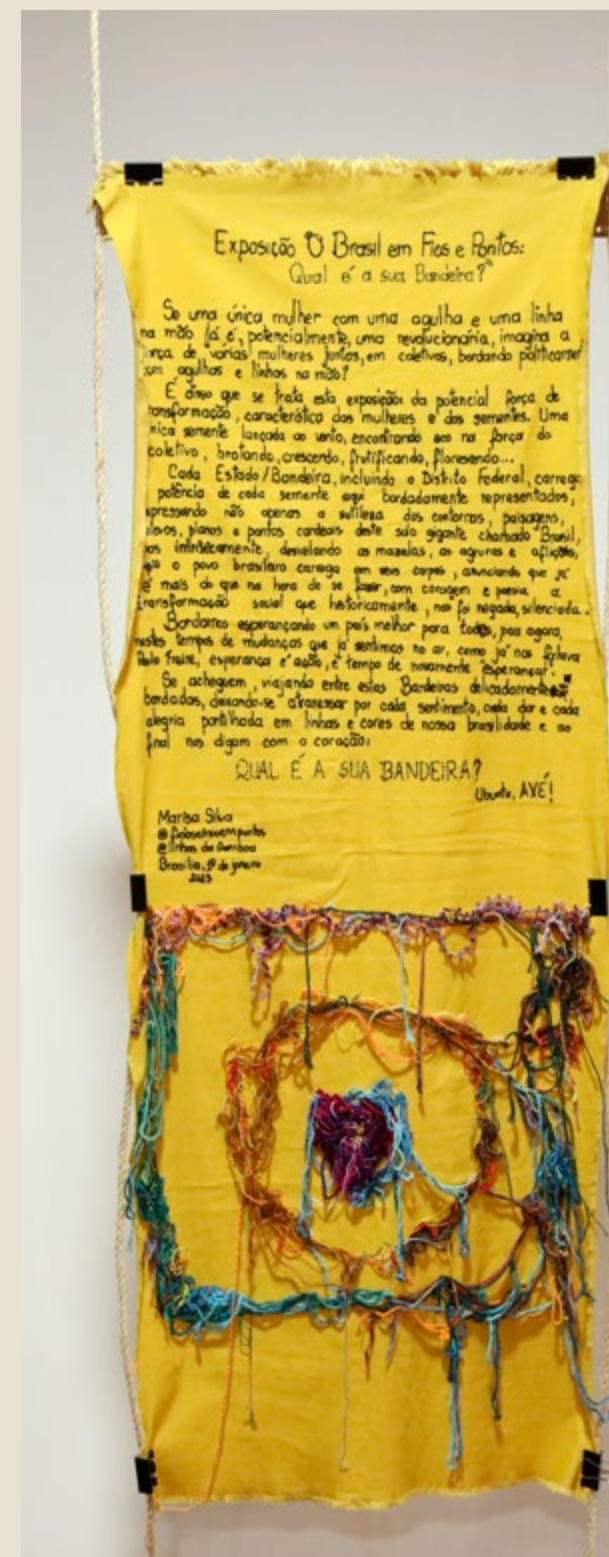 Exposição "O Brasil em Fios e Pontos:
Qual é a sua Bandeira?"
Se uma única mulher com uma agulha e uma linha
na mão já é, potencialmente, uma revolucionária, imagina a
força de varias mulheres juntas, em coletivos, bordando
com agulhas e linhas na mão?
É disso que se trata esta exposição: da potencial força de
transformação, característica das mulheres e das sementes. Uma
única semente lançada ao vento, encontrando eco na força do
coletivo, brotando, crescendo, frutificando, floresendo...
Cada Estado/Bandeira, incluindo o Distrito Federal, carrega
potência de cada semente aqui bordadamente representados,
expressando não apenas a sutileza dos contornos, paisagens,
relevos, planos e pontos cardeais deste solo gigante chamado Brasil,
mas intrinsecamente, desvelando as mazelas, as agruras e aflições,
que o povo brasileiro carrega em seus corpos, anunciando que já
é mais do que na hora de se fazer, com coragem e poesia, a
transformação social que historicamente, nos foi negada, silenciada.
Bordamos esperançando um país melhor para todes, pois agora,
nestes tempos de mudanças que já sentimos no ar, como já nos falava
Paulo Freire, esperança é ação, é tempo de novamente "esperançar".
Se acheguem, viajando entre estas Bandeiras delicadamente
bordadas, deixando-se atravessar por cada sentimento, cada dor e cada
alegria partilhada em linhas e cores de nossa brasilidade e ao
final nos digam com o coração:
QUAL É A SUA BANDEIRA?
Ubuntu, AXÉ!
Marisa Silva
@linhas da Gamboa
Brasília, 1º de janeiro
2023